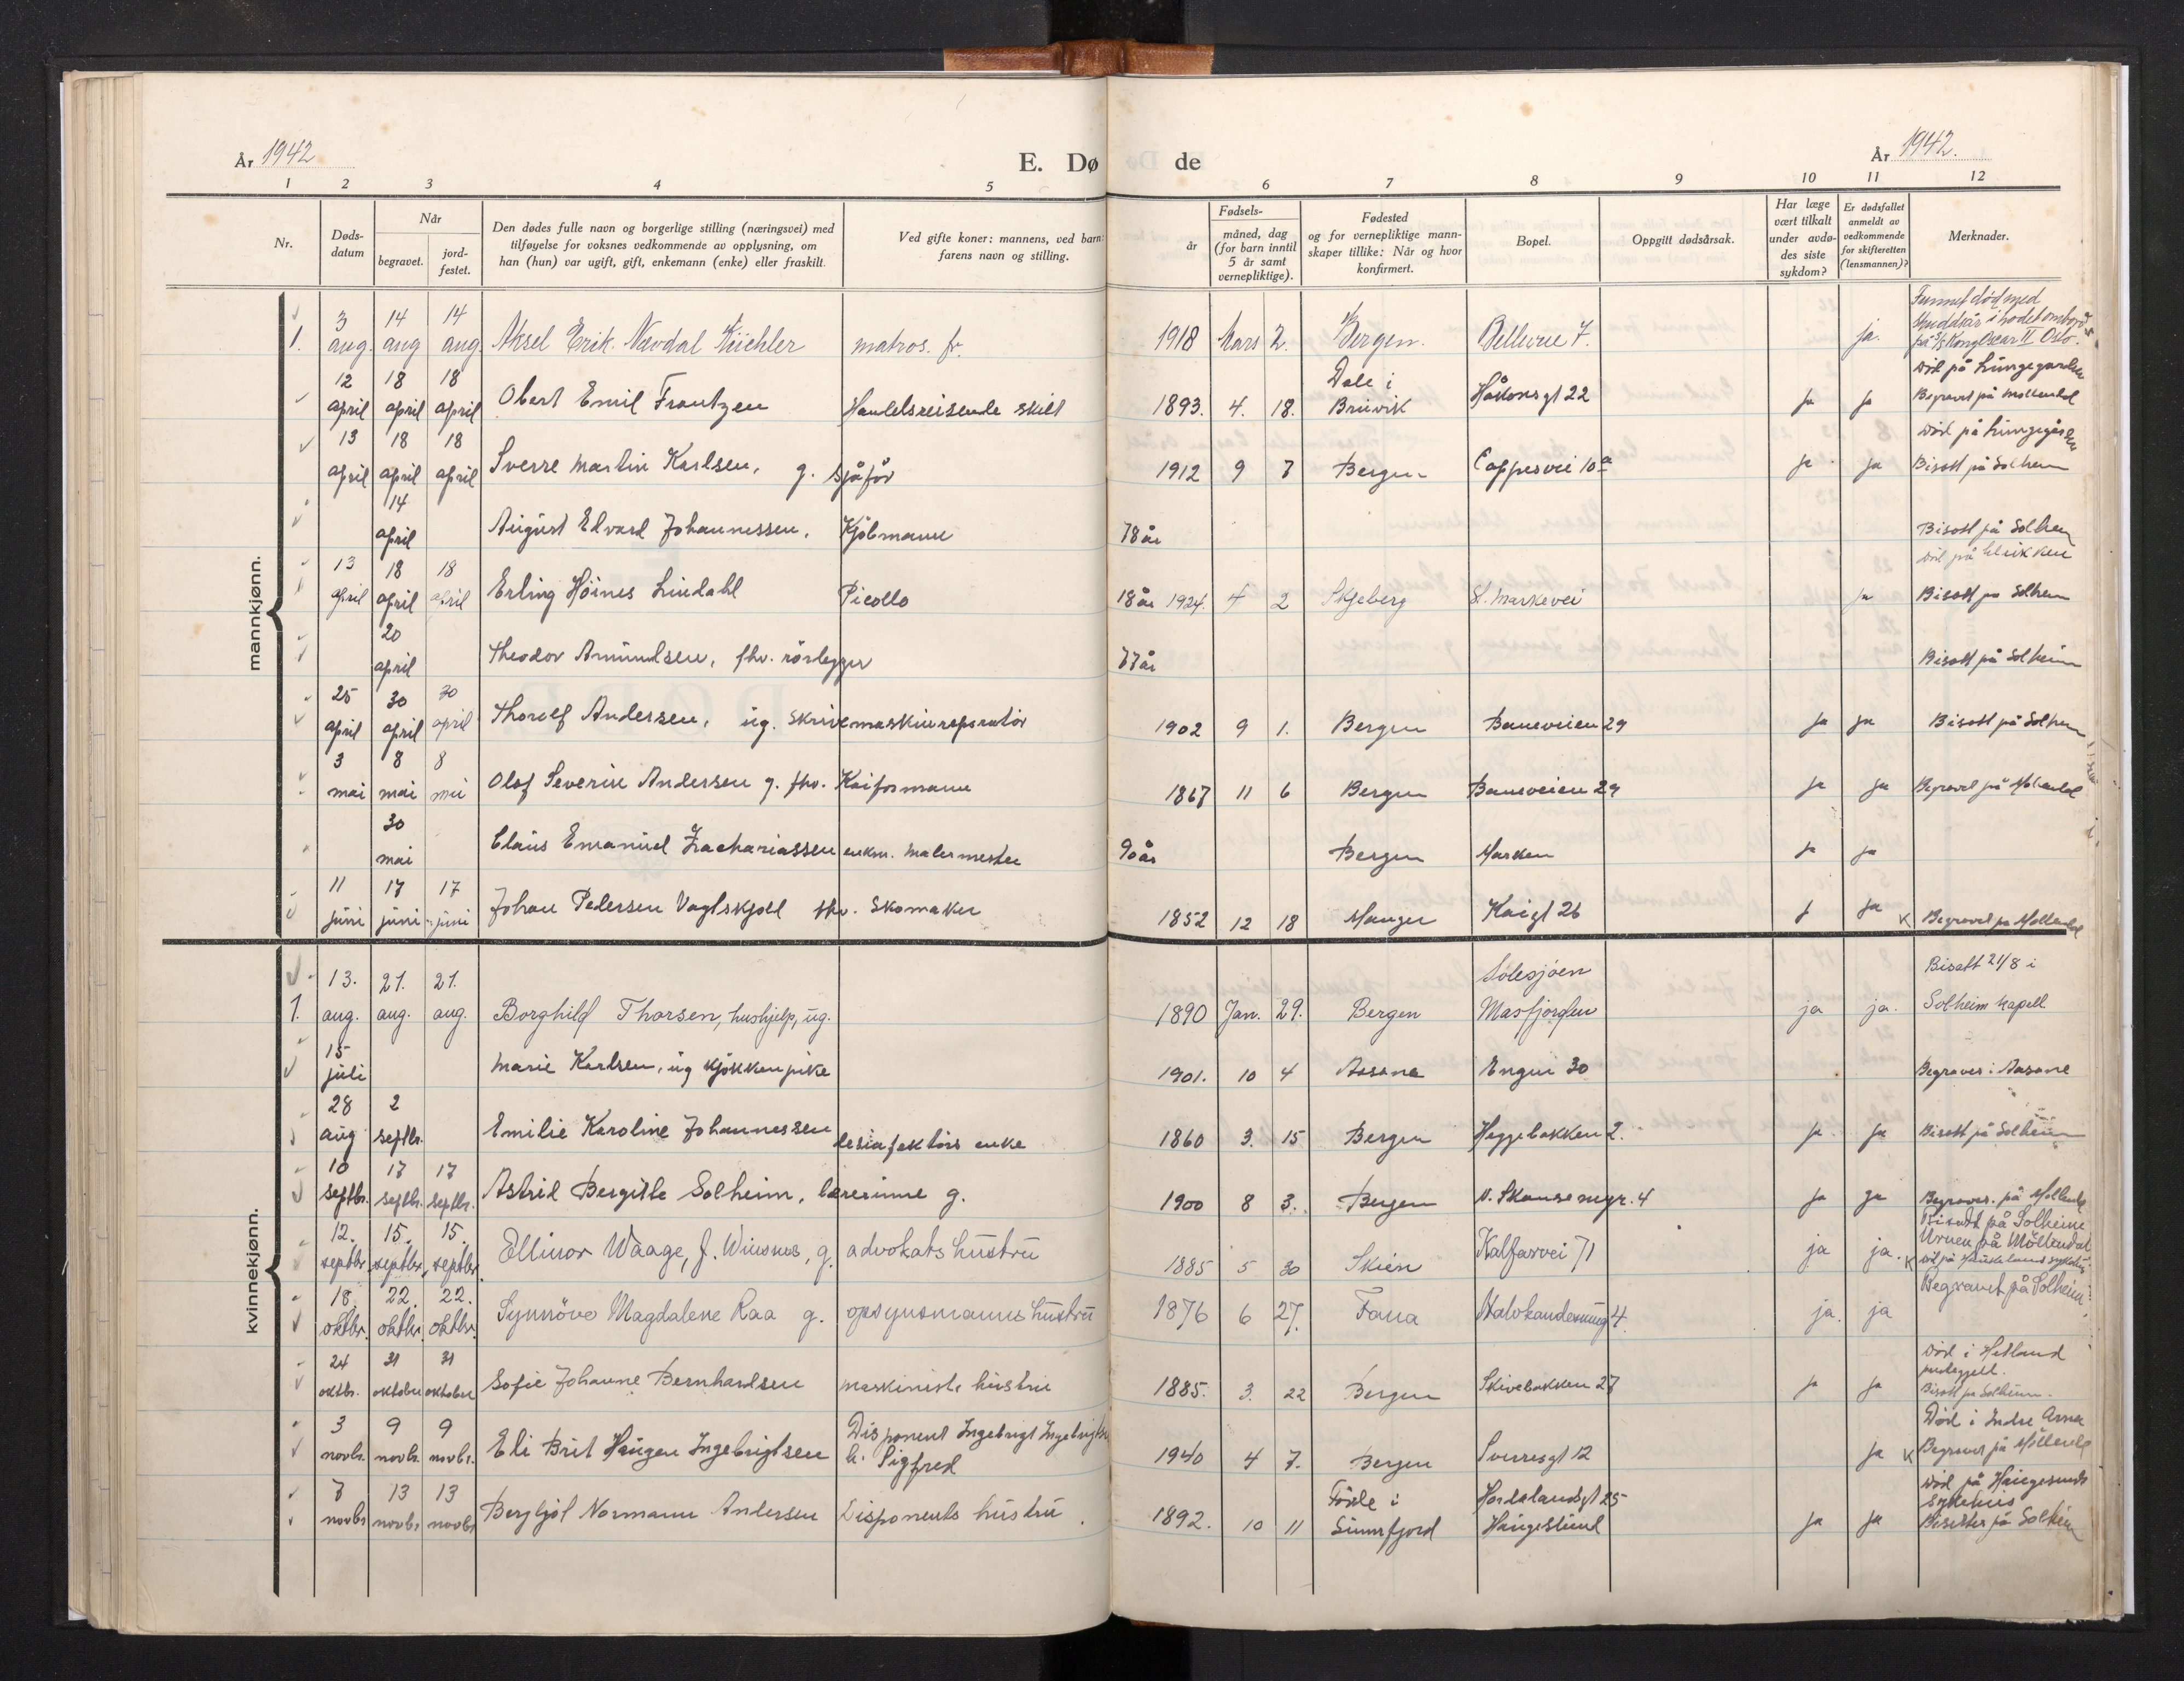 År 1942
E. Dø de
År 1942.
1 2 3 4 5 6 7 8 9 10 11 12
Nr.
Døds-
datum
Når
begravet.
jord-
festet.
Den dødes fulle navn og borgerlige stilling (næringsvei) med
tilføyelse for voksnes vedkommende av opplysning, om
han (hun) var ugift, gift, enkemann (enke) eller fraskilt.
Ved gifte koner: mannens, ved barn:
farens navn og stilling.
Fødsels-
år
måned, dag
(for barn inntil
5 år samt
vernepliktige).
Fødested
og for vernepliktige mann-
skaper tillike: Når og hvor
konfirmert.
Bopel.
Oppgitt dødsårsak.
Har læge
vært tilkalt
under avdø-
des siste
sykdom?
Er dødsfallet
anmeldt av
vedkommende
for skifteretten
(lensmannen)?
Merknader.
mannkjønn.
Funnet død med
skuddsår i hodet ombord
på S/S Kong Oscar II Oslo.
3 14 14
1. aug. aug aug. Aksel Erik Nævdal Küchler matros. fr. 1918 Mars 2. Bergen. Bellevue 7. ja.
12 18 18 Dale i Død på Lungegården
april april april Obert Emil Frantzen Handelsreisende skilt 1893. 4. 18. Bruvik Håkonsgt 22 ja ja Begravet på Møllendal
13 18 18 Død på Lungegården
april april april Sverre Martin Karlsen, g. sjåfør 1912 9 7 Bergen Coppesvei 10a ja ja Bisatt på Solheim
14
april August Edvard Johannessen, Kjøbmann 78 år Bisatt på Solheim
13 18 18
april april april Erling Höines Lindahl Picollo 18 år 1924. 4 2 Skjeberg St. Markevei ja Bisatt på Solheim
20
april Theodor Amundsen, fhv. rörlegger 77 år Bisatt på Solheim
25 30 30
april april april Thorolf Andersen, ug. Skrivemaskinreparatör 1902 9 1. Bergen Baneveien 29 ja ja Bisatt på Solheim
3 8 8
mai mai mai Olaf Severin Andersen g. fhv. Kaiformann 1867 11 6 Bergen Baneveien 29 ja ja Begravet på Møllendal
30
mai Claus Emanuel Zachariassen enkm. Malermester 90 år Bergen Marken ja ja
11 17 17
juni juni juni Johan Pedersen Vagtskjold fhv. Skomaker 1852 12 18 Manger Kaigt 26 j ja x Begravet på Møllendal
kvinnekjønn.
13. 21. 21. Solesjøen Bisatt 21/8 i
1. aug. aug. aug. Borghild Thorsen, hushjelp, ug. 1890 Jan. 29. Bergen Masfjorden ja ja. Solheim kapell
15
juli Marie Karlsen, ug kjøkkenpike 1901. 10 4 Aasane Engen 30 Begraves i Aasane
28 2
aug septbr. Emilie Karoline Johannessen desinfektørs enke 1860 3. 15 Bergen Heggebakken 2. ja ja Bisatt på Solheim
10 17 17
septbr. septbr. septbr. Astrid Bergitte Solheim, lærerinne g. 1900 8 3. Bergen N. Skansemyr. 4 ja ja Begraves på Møllendal
12. 15. 15. Bisatt på Solheim
Urnen på Möllendal
septbr. septbr. septbr. Ellinor Waage, f. Winsnes, g. advokats hustru 1885 5 30 Skien Kalfarvei 71 ja ja. x død på Haukelands sykehus
18. 22. 22. Begravet på Solheim
oktbr. oktbr. oktbr. Synnöve Magdalene Raa g. opsynsmanns hustru 1876 6 27. Fana 4. ja. ja
24 31 31 Død i Hetland
prestegjeld.
oktbr. oktober oktober Sofie Johanne Bernhardsen maskinists hustru 1885. 3. 22 Bergen Skivebakken 27 ja ja Bisatt på Solheim.
3 9 9 Disponent Ingebrigt Ingebrigtsen Död i Indre Arna
novbr. novbr. novbr. Eli Brit Haugen Ingebrigtsen h. Sigfred 1940 4 7. Bergen Sverresgt 12 ja x Begravet på Møllendal
7 13 13 Förde i Hordalandsgt 25 Død på Haugesunds
sykehus
novbr novbr. novbr Bergljot Normann Andersen Disponents hustru. 1892. 10 11 Sunnfjord Haugesund ja ja Bisettes på Solheim